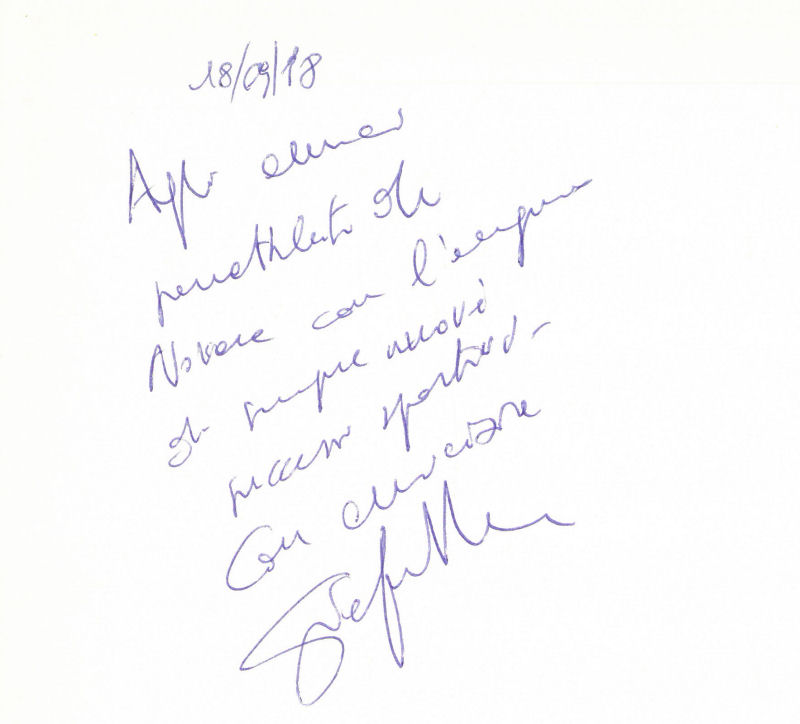 18/09/18
Agli amici
panathleti di
Novara con l'augurio
di sempre nuovi
successi sportivi.
Con amicizia